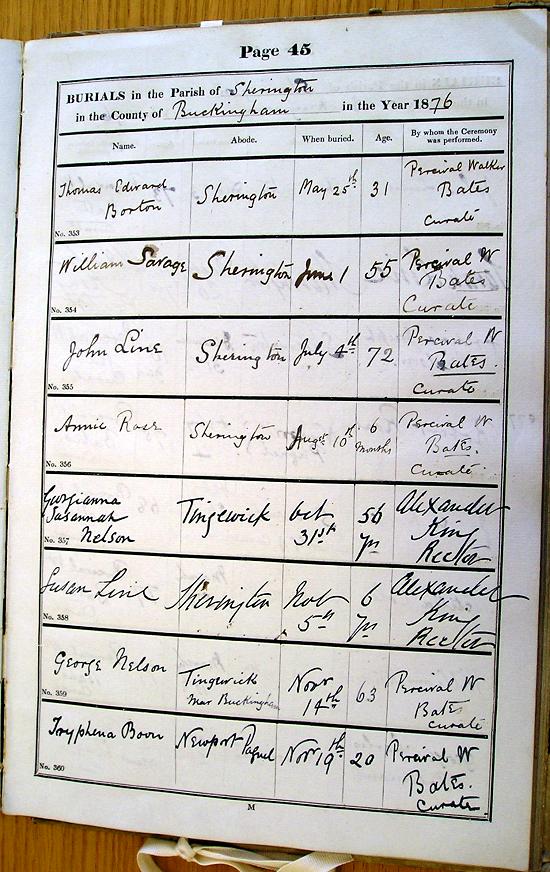 Page 45
BURIALS in the Parish of Sherington
in the County of Buckingham in the Year 1876
Name. Abode. When buried. Age. By whom the Ceremony was performed.
Thomas Edward Borton Sherington May 25th 31 Percival Walker Bates Curate
No. 353
William Savage Sherington June 1 55 Percival W Bates Curate
No. 354
John Line Sherington July 4th 72 Percival W Bates. Curate
No. 355
Annie Rose Sherington Augst 10th 6 Months Percival W Bates. Curate
No. 356
Georgianna Susannah Nelson Tingewick Oct 31st 56 yrs Alexander King Rector
No. 357
Susan Line Sherington Nov 5th 6 yrs Alexander King Rector
No. 358
George Nelson Tingewick Near Buckingham Novr 14th 63 Percival W Bates Curate
No. 359
Tryphena Boon Newport Pagnel Novr 19th 20 Percival W Bates. Curate
No. 360
M